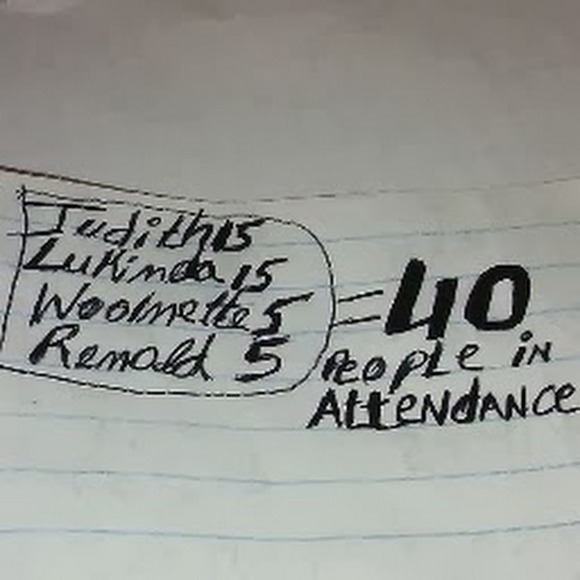 Judith 15
Lukinda 15
Woolnette 5
Renald 5
= 40
PEOPLE iN
AttENdANCe